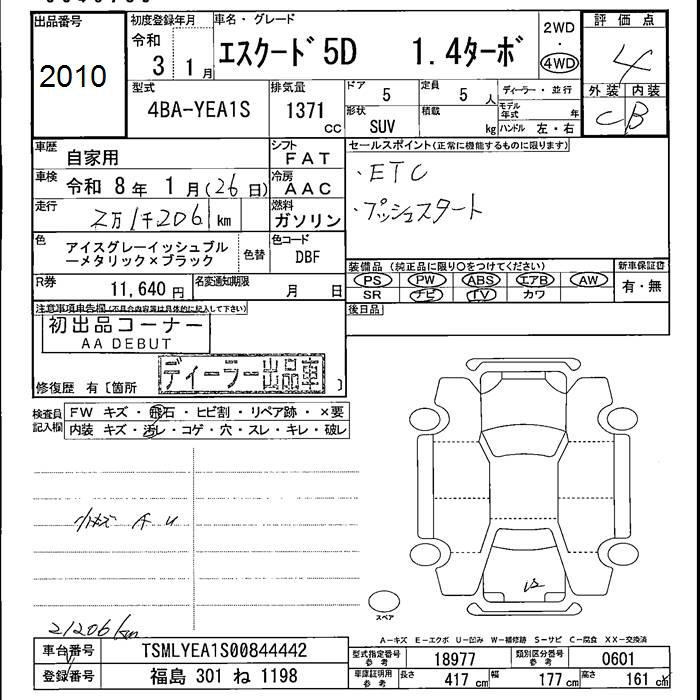 出品番号
2010
初度登録年月
令和
3 1月
車名・グレード
エスクード 5D 1.4ターボ
2WD
・
4WD
評価点
4
外装 内装
C B
型式
4BA-YEA1S
排気量
1371
cc
ドア
5
定員
5 人
形状
SUV
積載
kg
ディーラー・並行
モデル
年式 年
ハンドル 左・右
車歴
自家用
シフト
FAT
車検
令和 8年 1月(26日)
冷房
AAC
走行
2万1千206 km
燃料
ガソリン
色
アイスグレーイッシュブル
ーメタリック×ブラック
色替
色コード
DBF
R券
11,640 円
名変通知期限
月 日
セールスポイント(正常に機能するものに限ります)
・ETC
・プッシュスタート
装備品 (純正品に限り○をつけてください)
PS PW ABS エアB AW
SR ナビ TV カワ
新車保証書
有・無
後日品
注意事項申告欄(不具合内容等は具体的に記入して下さい)
初出品コーナー
AA DEBUT
ディーラー出品車
修復歴 有〔箇所 〕
検査員
記入欄
FW キズ・飛石・ヒビ割・リペア跡・×要
内装 キズ・汚レ・コゲ・穴・スレ・キレ・破レ
小キズ A U
21206km
U2
スペア
A-キズ E-エクボ U-凹み W-補修跡 S-サビ C-腐食 XX-交換済
車台番号
TSMLYEA1S00844442
登録番号
福島 301 ね 1198
型式指定番号
参考
18977
類別区分番号
参考
0601
車庫証明用
参考
長さ
417 cm
幅
177 cm
高さ
161 cm